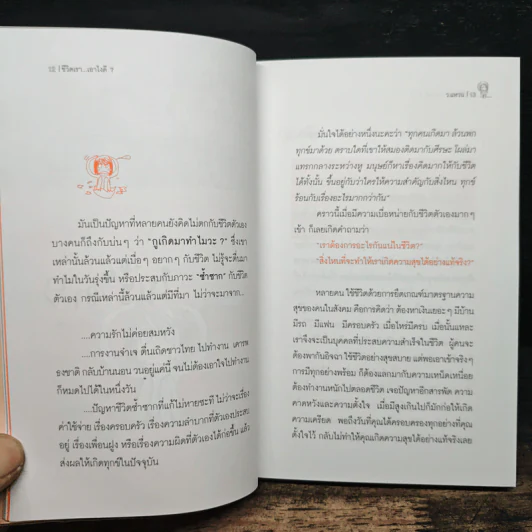 12 | ชีวิตเรา...เอาไงดี ?
มันเป็นปัญหาที่หลายคนยังคิดไม่ตกกับชีวิตตัวเอง
บางคนก็ถึงกับบ่นๆ ว่า "กูเกิดมาทำไมวะ ?" ซึ่งเขา
เหล่านั้นล้วนแล้วแต่เบื่อๆ อยากๆ กับชีวิต ไม่รู้จะตื่นมา
ทำไมในวันรุ่งขึ้น หรือประสบกับภาวะ "ซ้ำซาก" กับชีวิต
ตัวเอง กรณีเหล่านี้ล้วนแล้วแต่มีที่มา ไม่ว่าจะมาจาก..
....ความรักไม่ค่อยสมหวัง
....การงานจำเจ ตื่นเถิดชาวไทย ไปทำงาน เคารพ
ธงชาติ กลับบ้านนอน วนอยู่แค่นี้ จนไม่ต้องเอาใจไปทำงาน
ก็หมดไปได้ในหนึ่งวัน
....ปัญหาชีวิตซ้ำซากที่แก้ไม่หายซะที ไม่ว่าจะเรื่อง
ค่าใช้จ่าย เรื่องครอบครัว เรื่องความลำบากที่ตัวเองประสบ
อยู่ เรื่องเพื่อนฝูง หรือเรื่องความผิดที่ตัวเองได้ก่อขึ้น แล้ว
ส่งผลให้เกิดทุกข์ในปัจจุบัน
| 13
มั่นใจได้อย่างหนึ่งนะคะว่า "ทุกคนเกิดมา ล้วนพก
ทุกข์มาด้วย ตราบใดที่เขาให้สมองติดมากับศีรษะ โผล่มา
แทรกกลางระหว่างหู มนุษย์ก็หาเรื่องคิดมากให้กับชีวิต
ได้ทั้งนั้น ขึ้นอยู่กับว่าใครให้ความสำคัญกับสิ่งไหน ทุกข์
ร้อนกับเรื่องอะไรมากกว่ากัน"
คราวนี้เมื่อมีความเบื่อหน่ายกับชีวิตตัวเองมากๆ
เข้า ก็เลยเกิดคำถามว่า
"เราต้องการอะไรกันแน่ในชีวิต?"
"สิ่งไหนที่จะทำให้เราเกิดความสุขได้อย่างแท้จริง?"
หลายคน ใช้ชีวิตด้วยการยึดเกณฑ์มาตรฐานความ
สุขของคนในสังคม คือการคิดว่า ต้องหาเงินเยอะๆ มีบ้าน
มีรถ มีแฟน มีครอบครัว เมื่อไหร่มีครบ เมื่อนั้นแหละ
เราจึงจะเป็นบุคคลที่ประสบความสำเร็จในชีวิต ผู้คนจะ
ต้องพากันอิจฉา ใช้ชีวิตอย่างสุขสบาย แต่พอเอาเข้าจริงๆ
การมีทุกอย่างพร้อม ก็ต้องแลกมากับความเหน็ดเหนื่อย
ต้องทำงานหนักไปตลอดชีวิต เจอปัญหาอีกสารพัด ความ
คาดหวังและความตั้งใจ เมื่อมีสูงเกินไปก็มักก่อให้เกิด
ความเครียด พอถึงวันที่คุณได้ครอบครองทุกอย่างที่คุณ
ตั้งใจไว้ กลับไม่ทำให้คุณเกิดความสุขได้อย่างแท้จริงเลย